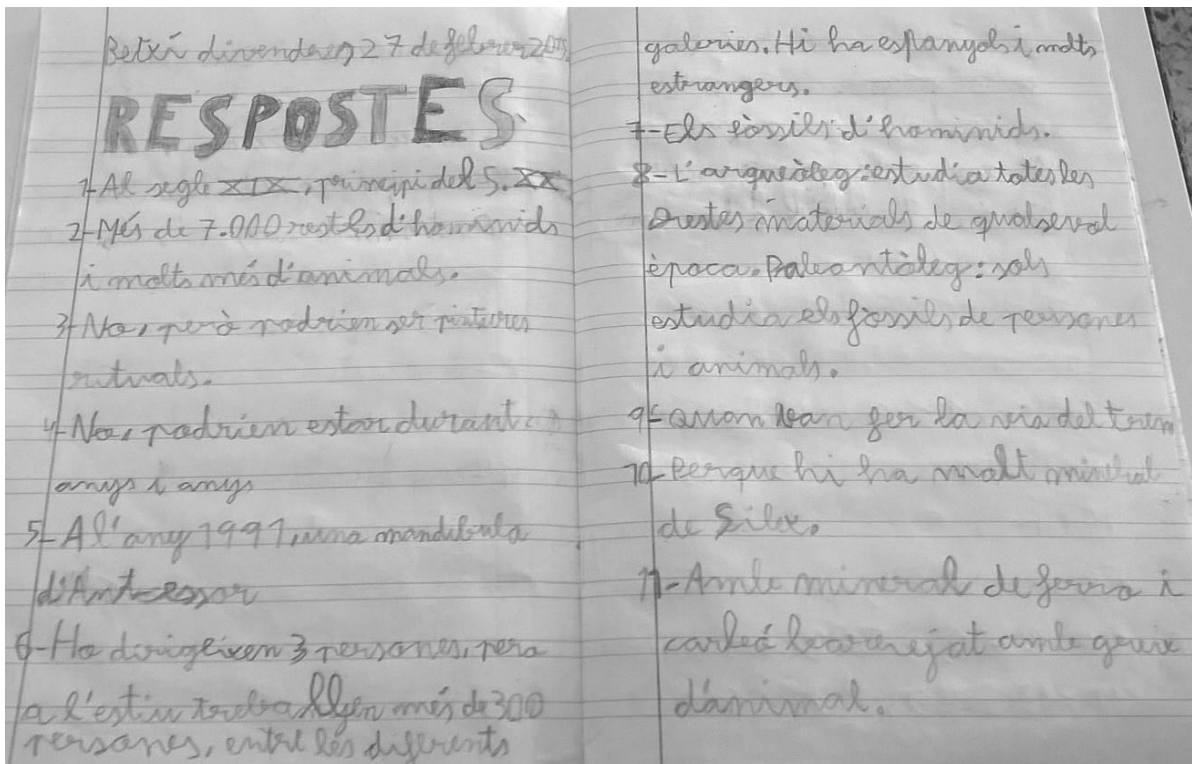 Betxí divendres 27 de febrer
RESPOSTES
1-Al segle XIX, principi del S. XX
2-Més de 7.000 restes d'hominids
i molts més d'animals.
3-No, però podrien ser pintures
rituals.
4-No, podrien estar durant
anys i anys
5-A l'any 1991, una mandibula
d'Antecessor
6-Ho dirigeixen 3 persones, pero
a l'estiu treballen més de 300
persones, entre les diferents
galeries. Hi ha espanyols i molts
estrangers.
7-Els fòssils d'hominids.
8-L'arqueòleg: estudia totes les
restes materials de qualsevol
època. Paleontòleg: sols
estudia els fòssils de persones
i animals.
9-Quan van fer la via del tren
10-Perque hi ha molt mineral
de Silex.
11-Amb mineral de ferro i
carbó barrejat amb greix
d'animal.